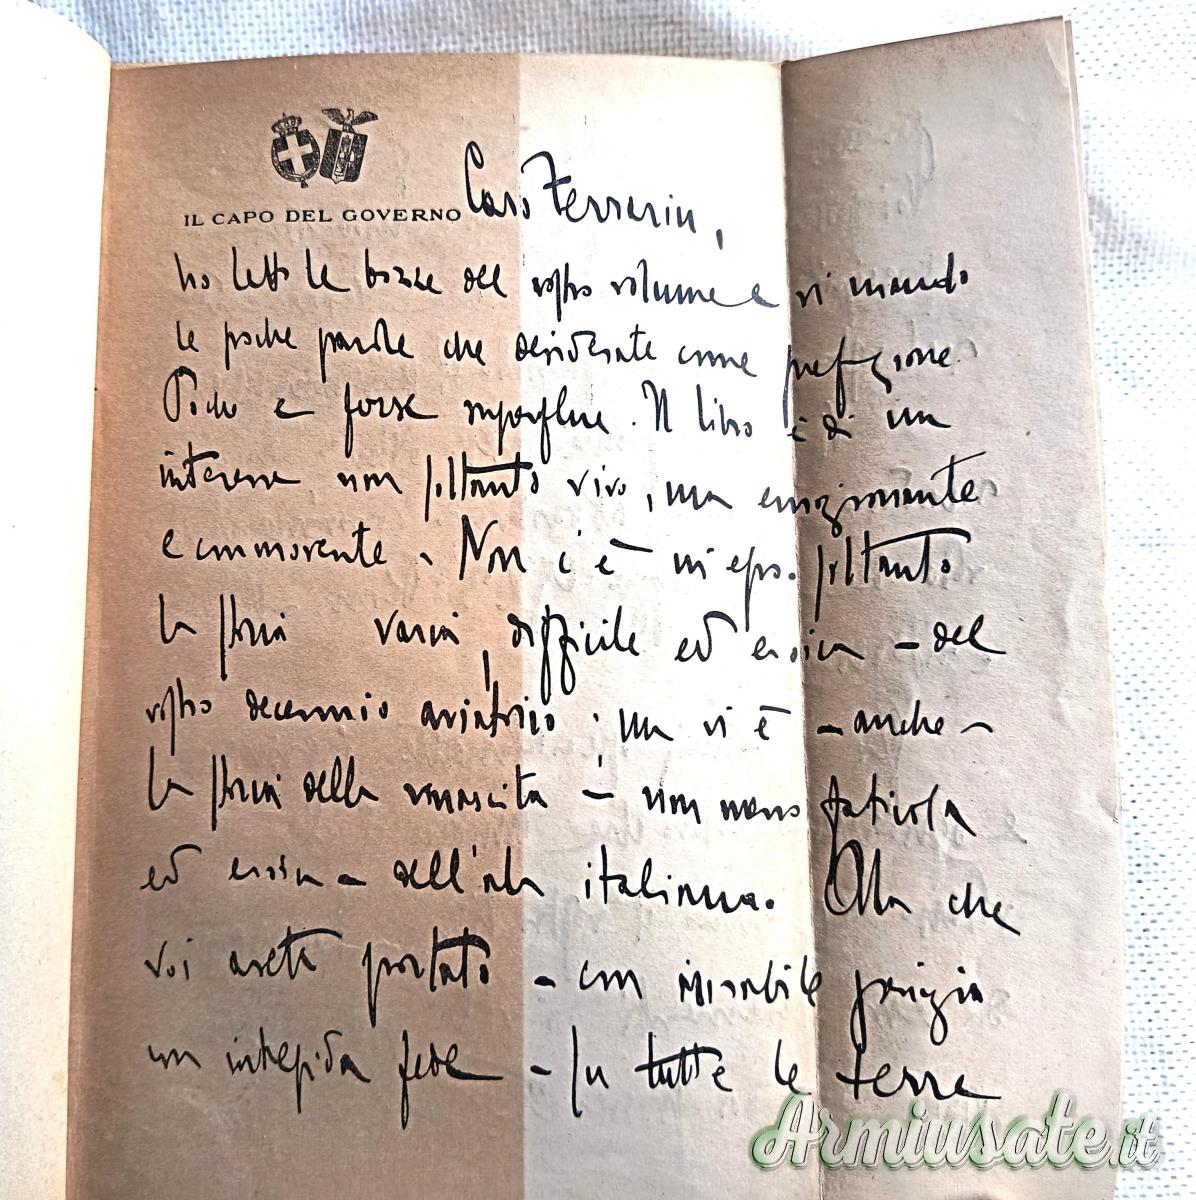 IL CAPO DEL GOVERNO
Caro Ferrarin,
ho letto le bozze del vostro volume e vi mando
le poche parole che desiderate come prefazione.
Poche e forse superflue. Il libro è di un
interesse non soltanto vivo, ma emozionante
e commovente. Non c'è in esso soltanto
la storia varia, difficile ed eroica - del
vostro decennio aviatorio; ma vi è - anche -
la storia della rinascita - non meno faticosa
ed eroica - dell'ala italiana. Ala che
voi avete portato - con mirabile perizia
con intrepida fede - su tutte le terre
Armiusate.it